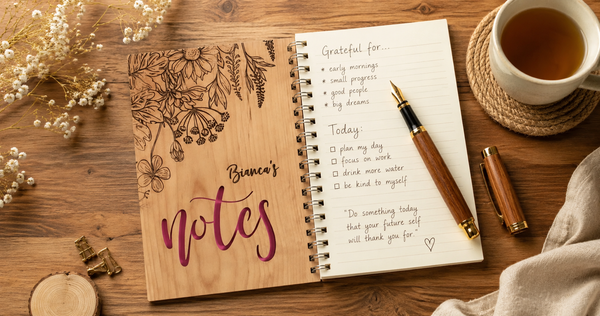 Bianca's
notes
Grateful for...
* early mornings
* small progress
* good people
* big dreams
Today:
☐ plan my day
☐ focus on work
☐ drink more water
☐ be kind to myself
"Do something today
that your future self
will thank you for."